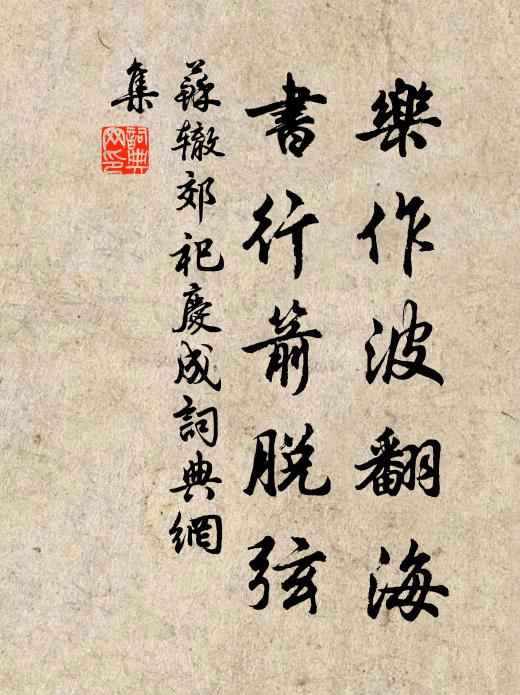 樂作波翻海
書行箭脫弦
蘇轍郊祀慶成詞典網
集
詞典網印